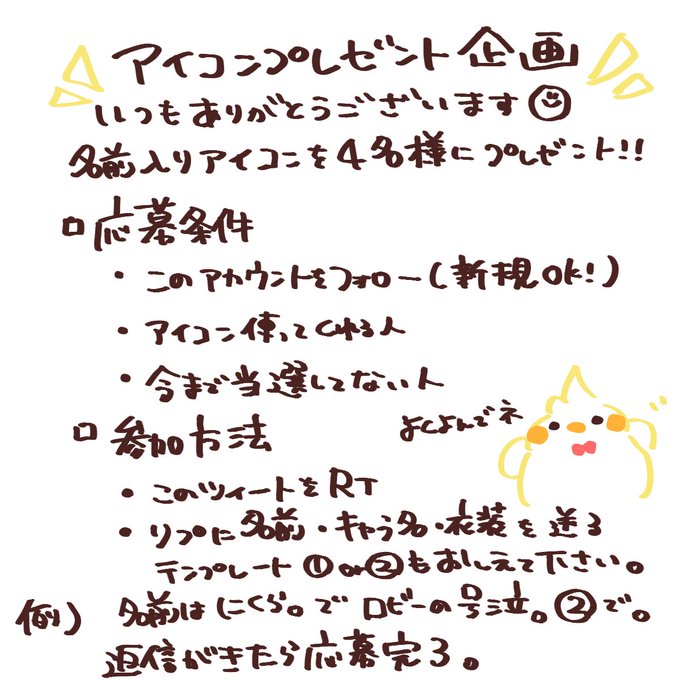 アイコンプレゼント企画
いつもありがとうございます
名前入りアイコンを4名様にプレゼント!!
応募条件
・このアカウントをフォロー(新規OK!)
・アイコン使ってくれる人
・今まで当選してない人
参加方法
よくよんでネ
・このツイートをRT
・リプに名前・キャラ名・衣装を送る
テンプレート①or②もおしえて下さい。
例) 名前はにくら。でロビーの号泣。②で。
返信がきたら応募完了。